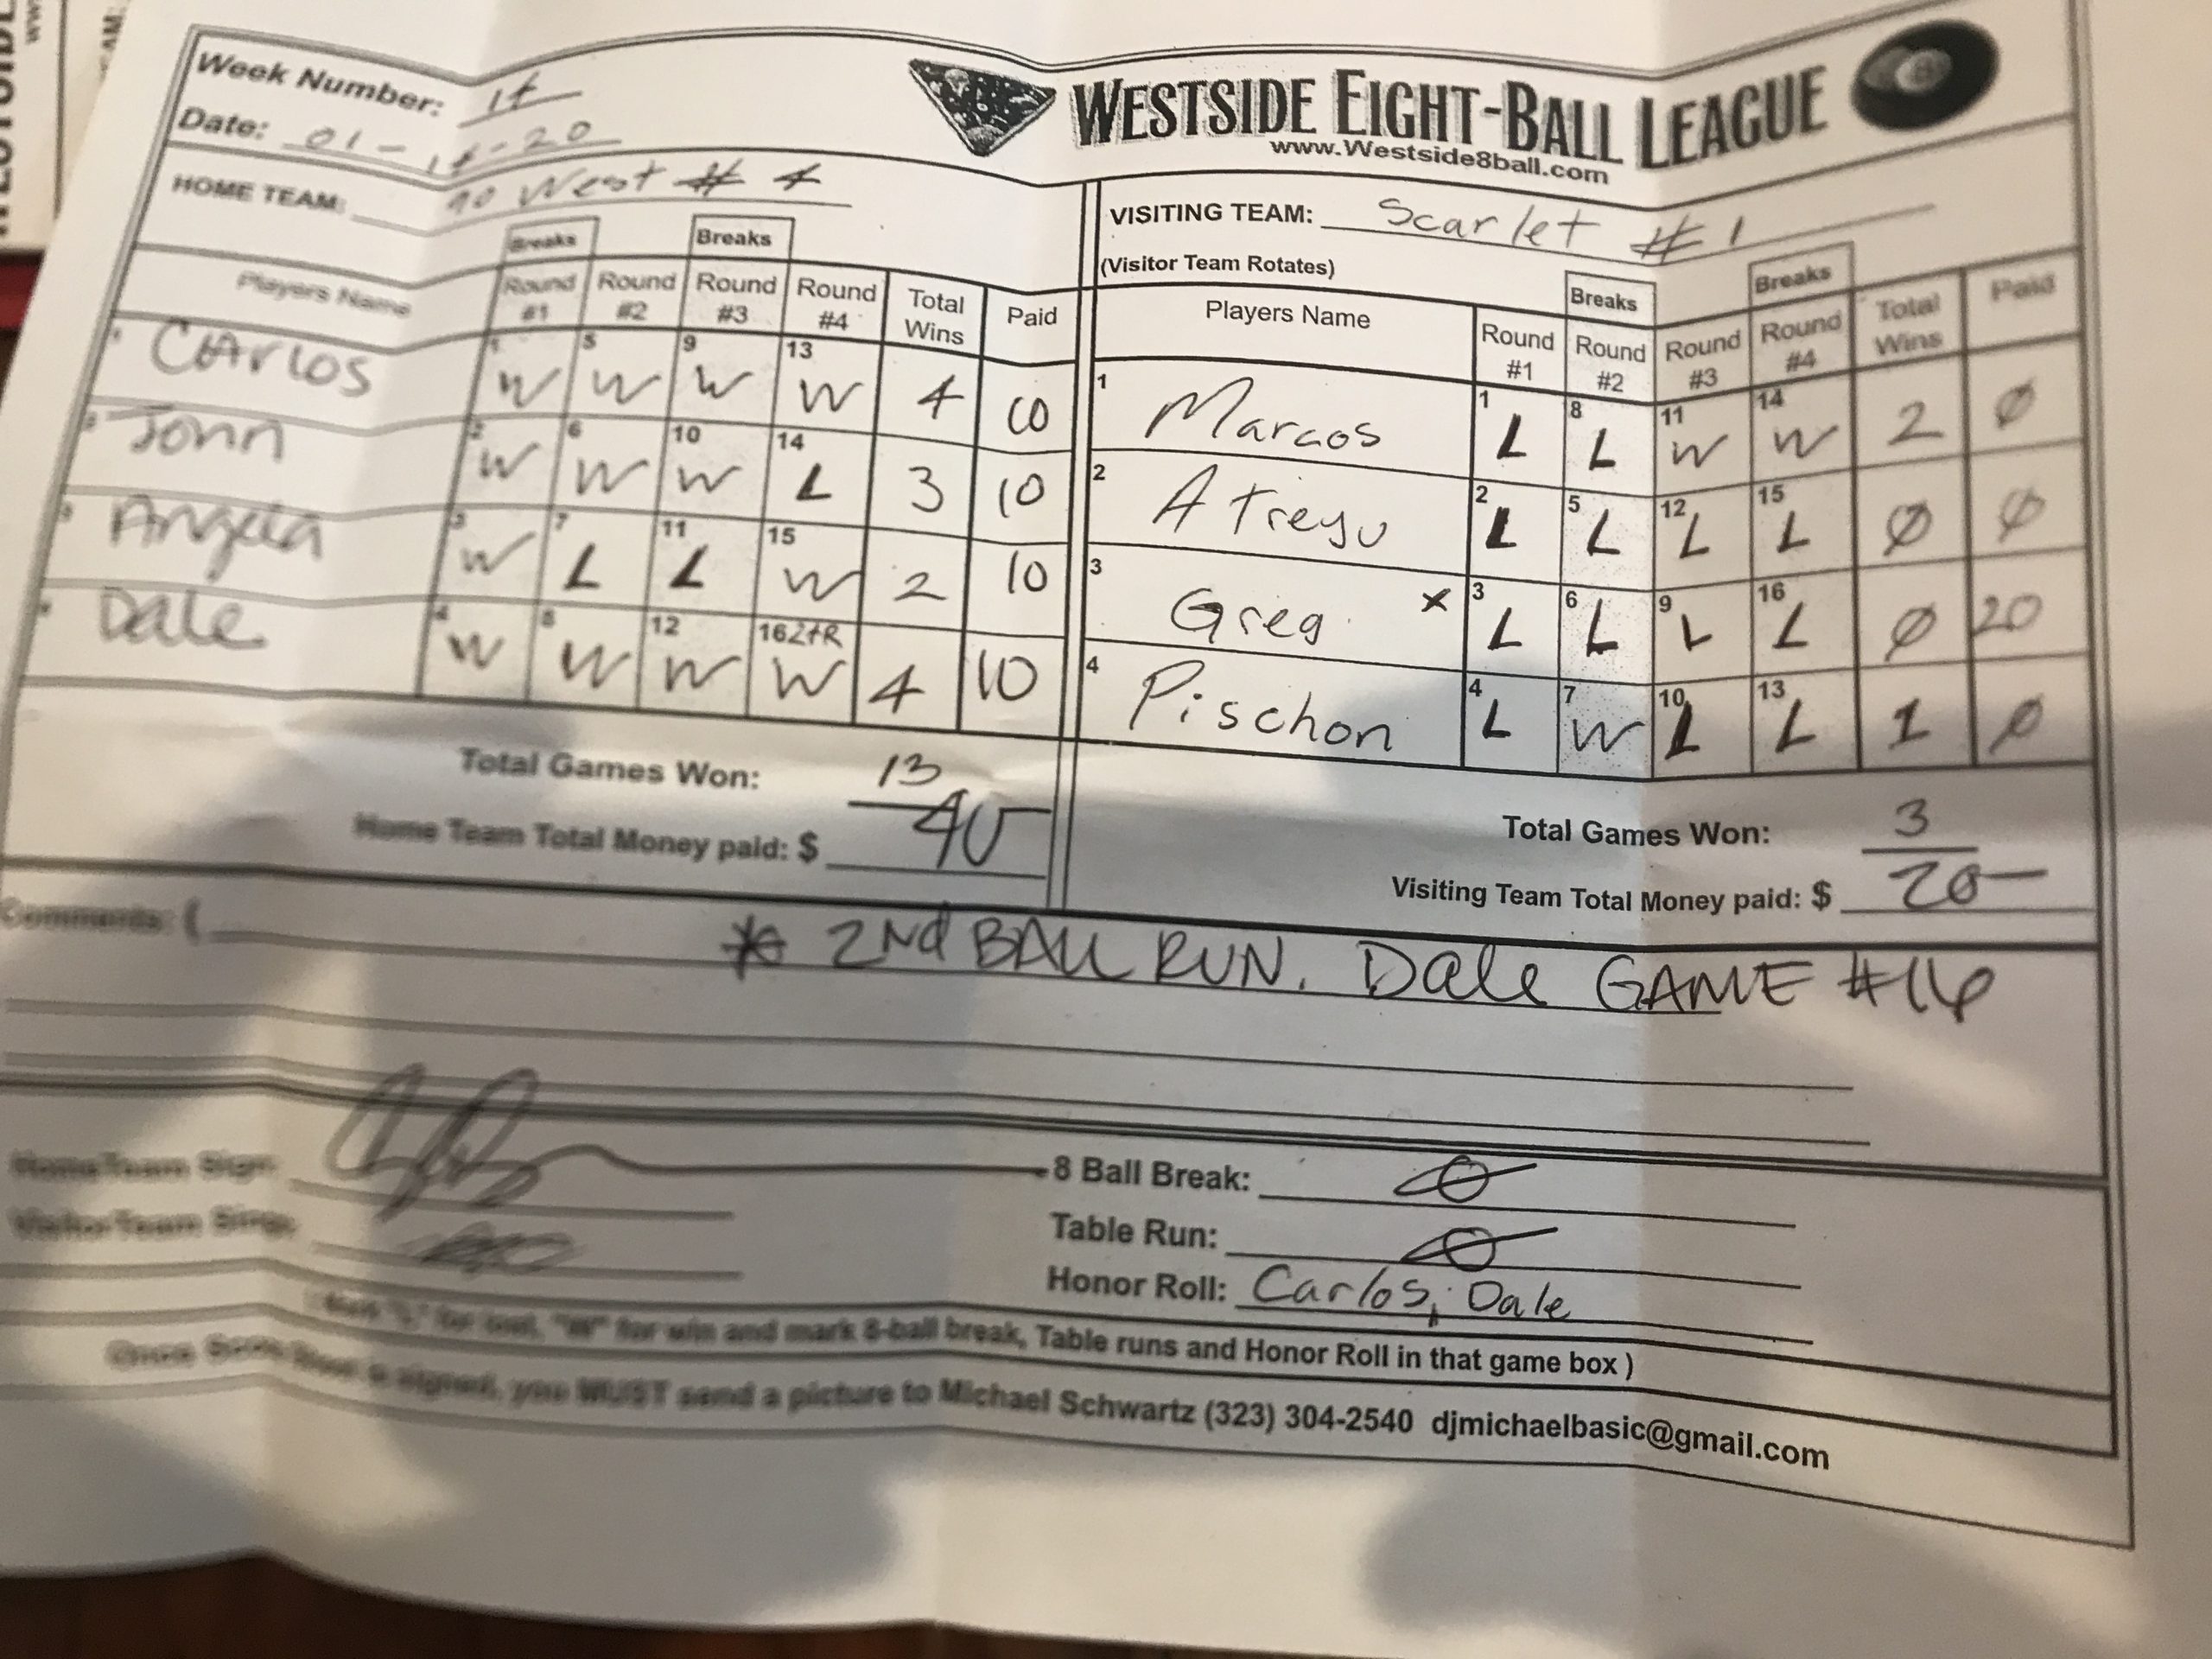 Week Number:
WESTSIDE EIGHT-BALL LEAGUE
Date: 01-14-20
www.Westside8ball.com
HOME TEAM: 90 West # 4
VISITING TEAM: Scarlet #1
(Visitor Team Rotates)
Breaks Breaks
Players Name Round #1 Round #2 Round #3 Round #4 Total Wins Paid
1 CARlos 1 W 5 W 9 W 13 W 4 10
2 John 2 W 6 W 10 W 14 L 3 10
3 Angela 3 W 7 L 11 L 15 W 2 10
4 Dale 4 W 8 W 12 W 16 2tR W 4 10
Total Games Won: 13
Home Team Total Money paid: $ 40
Breaks Breaks
Players Name Round #1 Round #2 Round #3 Round #4 Total Wins Paid
1 Marcos 1 L 8 L 11 W 14 W 2 0
2 Atreyu 2 L 5 L 12 L 15 L 0 0
3 Greg x 3 L 6 L 9 L 16 L 0 20
4 Pischon 4 L 7 W 10 L 13 L 1 0
Total Games Won: 3
Visiting Team Total Money paid: $ 20-
Comments: (
* 2Nd BALL RUN. Dale GAME #16
Home Team Sign:
Visitor Team Sing:
8 Ball Break: 0
Table Run: 0
Honor Roll: Carlos, Dale
"L" for lost, "W" for win and mark 8-ball break, Table runs and Honor Roll in that game box )
Once Score Sheet is signed, you MUST send a picture to Michael Schwartz (323) 304-2540 djmichaelbasic@gmail.com